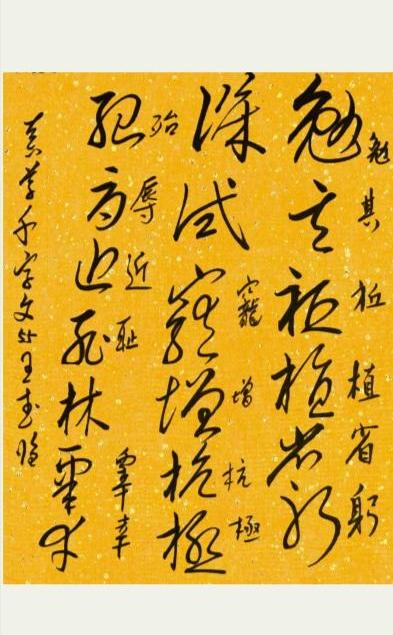 勉其祗植省躬
勉其祗植省躬
寵增抗極
譏誡寵增抗極
殆辱近恥皋幸
殆辱近恥林皋幸
真草千字文